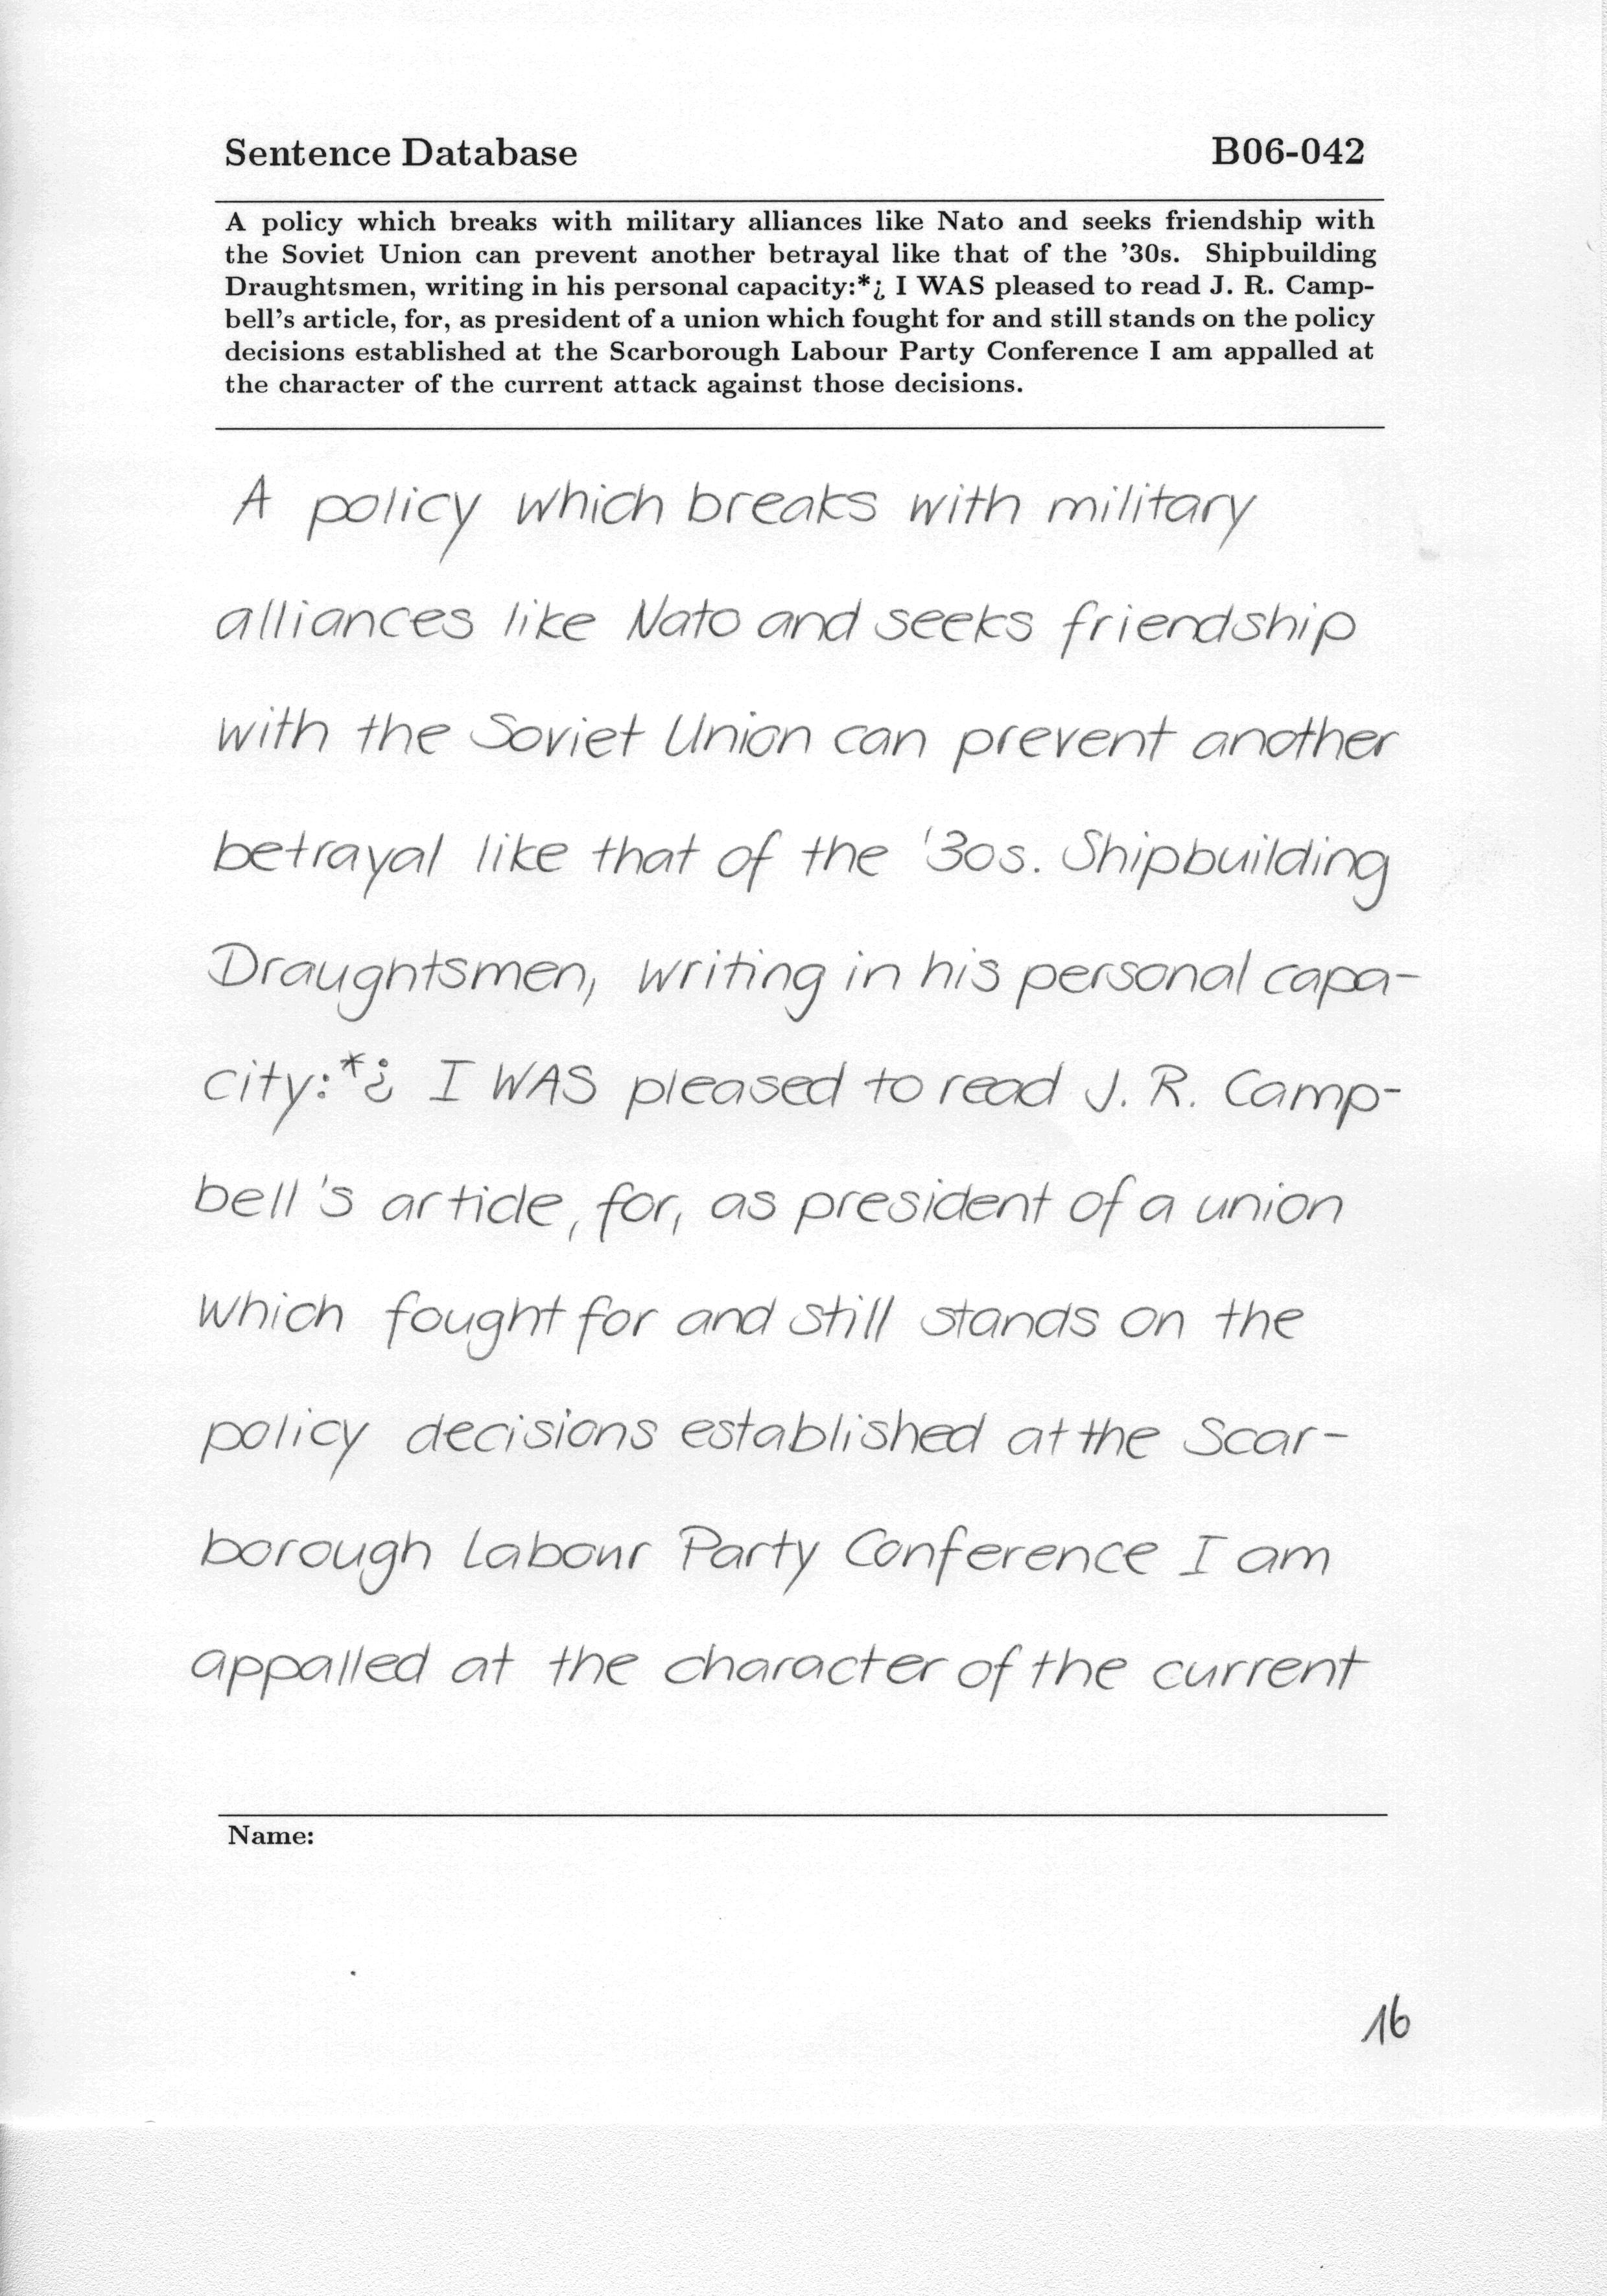 Sentence Database B06-042
A policy which breaks with military alliances like Nato and seeks friendship with
the Soviet Union can prevent another betrayal like that of the '30s. Shipbuilding
Draughtsmen, writing in his personal capacity:*¿ I WAS pleased to read J. R. Camp-
bell's article, for, as president of a union which fought for and still stands on the policy
decisions established at the Scarborough Labour Party Conference I am appalled at
the character of the current attack against those decisions.
A policy which breaks with military
alliances like Nato and seeks friendship
with the Soviet Union can prevent another
betrayal like that of the '30s. Shipbuilding
Draughtsmen, writing in his personal capa-
city:*¿ I WAS pleased to read J. R. Camp-
bell's article, for, as president of a union
which fought for and still stands on the
policy decisions established at the Scar-
borough Labour Party Conference I am
appalled at the character of the current
Name:
16